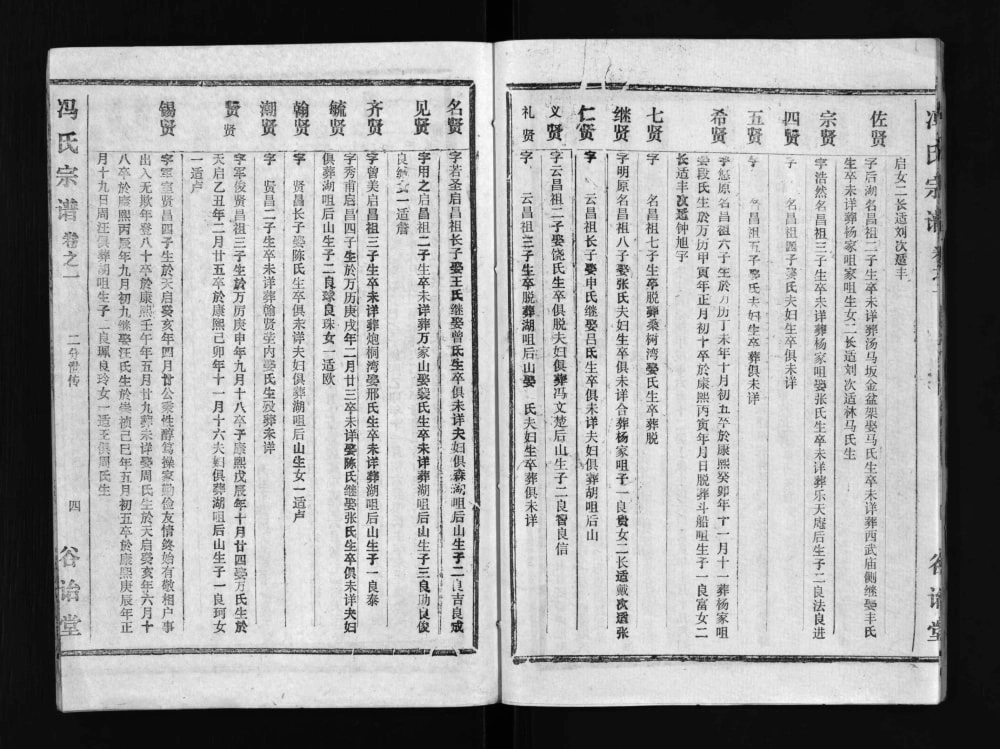 启女二长适刘次适丰
佐贤
字后湖名昌祖二子生卒未详葬汤马坂金盆架娶马氏生卒未详葬西武庙侧继娶丰氏
生卒未详葬杨家咀家咀生女二长适刘次适林马氏生
宗贤
字浩然名昌祖三子生卒未详葬杨家咀娶张氏生卒未详葬乐天庵后生子二良法良进
四贤
字 名昌祖四子娶氏夫妇生卒俱未详
五贤
字 名昌祖五子娶氏夫妇生卒葬俱未详
希贤
字悠原名昌祖六子生於万历丁未年十月初五卒於康熙癸卯年十一月十一葬杨家咀
娶段氏生於万历甲寅年正月初十卒於康熙丙寅年月日脱葬斗船咀生子一良富女二
长适丰次适钟旭宇
七贤
字 名昌祖七子生卒脱葬桑树湾娶氏生卒葬脱
继贤
字明原名昌祖八子娶张氏夫妇生卒俱未详合葬杨家咀子一良贵女二长适戴次适张
仁贤
字 云昌祖长子娶申氏继娶吕氏生卒俱未详夫妇俱葬胡咀后山
义贤
字云昌祖二子娶饶氏生卒俱脱夫妇俱葬冯文楚后山生子二良智良信
礼贤
字 云昌祖三子生卒脱葬湖咀后山娶 氏夫妇生卒葬俱未详
冯氏宗谱
谷诒堂
名贤
字若圣启昌祖长子娶王氏继娶曾氏生卒俱未详夫妇俱森湖咀后山生子二良吉良成
见贤
字用之启昌祖二子生卒未详葬万家山娶裴氏生卒未详葬湖咀后山生子三良勋良俊
良 女一适詹
齐贤
字曾美启昌祖三子生卒未详葬炮桐湾娶邢氏生卒未详葬湖咀后山生子一良泰
毓贤
字秀甫启昌四子生於万历庚戌年二月廿三卒未详娶陈氏继娶张氏生卒俱未详夫妇
俱葬湖咀后山生子二良球良珠女一适欧
翰贤
字贤昌长子娶陈氏生卒俱未详夫妇俱葬湖咀后山生女一适卢
潮贤
字 贤昌二子生卒未详葬翰贤茔内娶氏生殁葬未详
贤贤
字军俊贤昌祖三子生於万历庚申年九月十八卒子康熙戊辰年十月廿四娶万氏生於
天启乙丑年二月廿五卒於康熙己卯年十一月十六夫妇俱葬湖咀后山生子一良珂女
一适卢
锡贤
字军宣贤昌四子生於天启癸亥年四月廿公秉性醇笃操家勤俭友情终始有敬相户事
出入无欺年登八十卒於康熙壬午年五月廿九葬未详娶周氏生於天启癸亥年六月十
八卒於康熙丙辰年九月初九继娶汪氏生於崇祯己巳年五月初五卒於康熙庚辰年正
月十九日周汪俱葬胡咀生子二良珮良玲女一适王俱周氏生
冯氏宗谱 卷之一
二分世传
四
谷诒堂